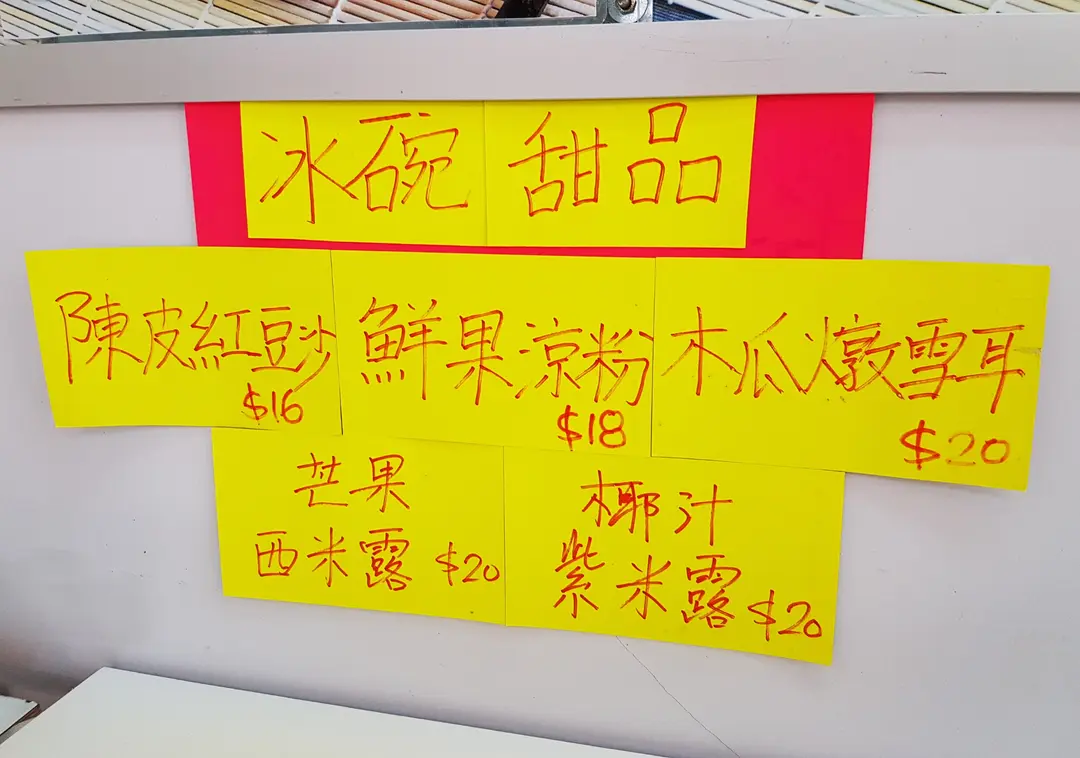 冰碗 甜品
陳皮紅豆沙
$16
鮮果涼粉
$18
木瓜燉雪耳
$20
芒果
西米露 $20
椰汁
紫米露 $20